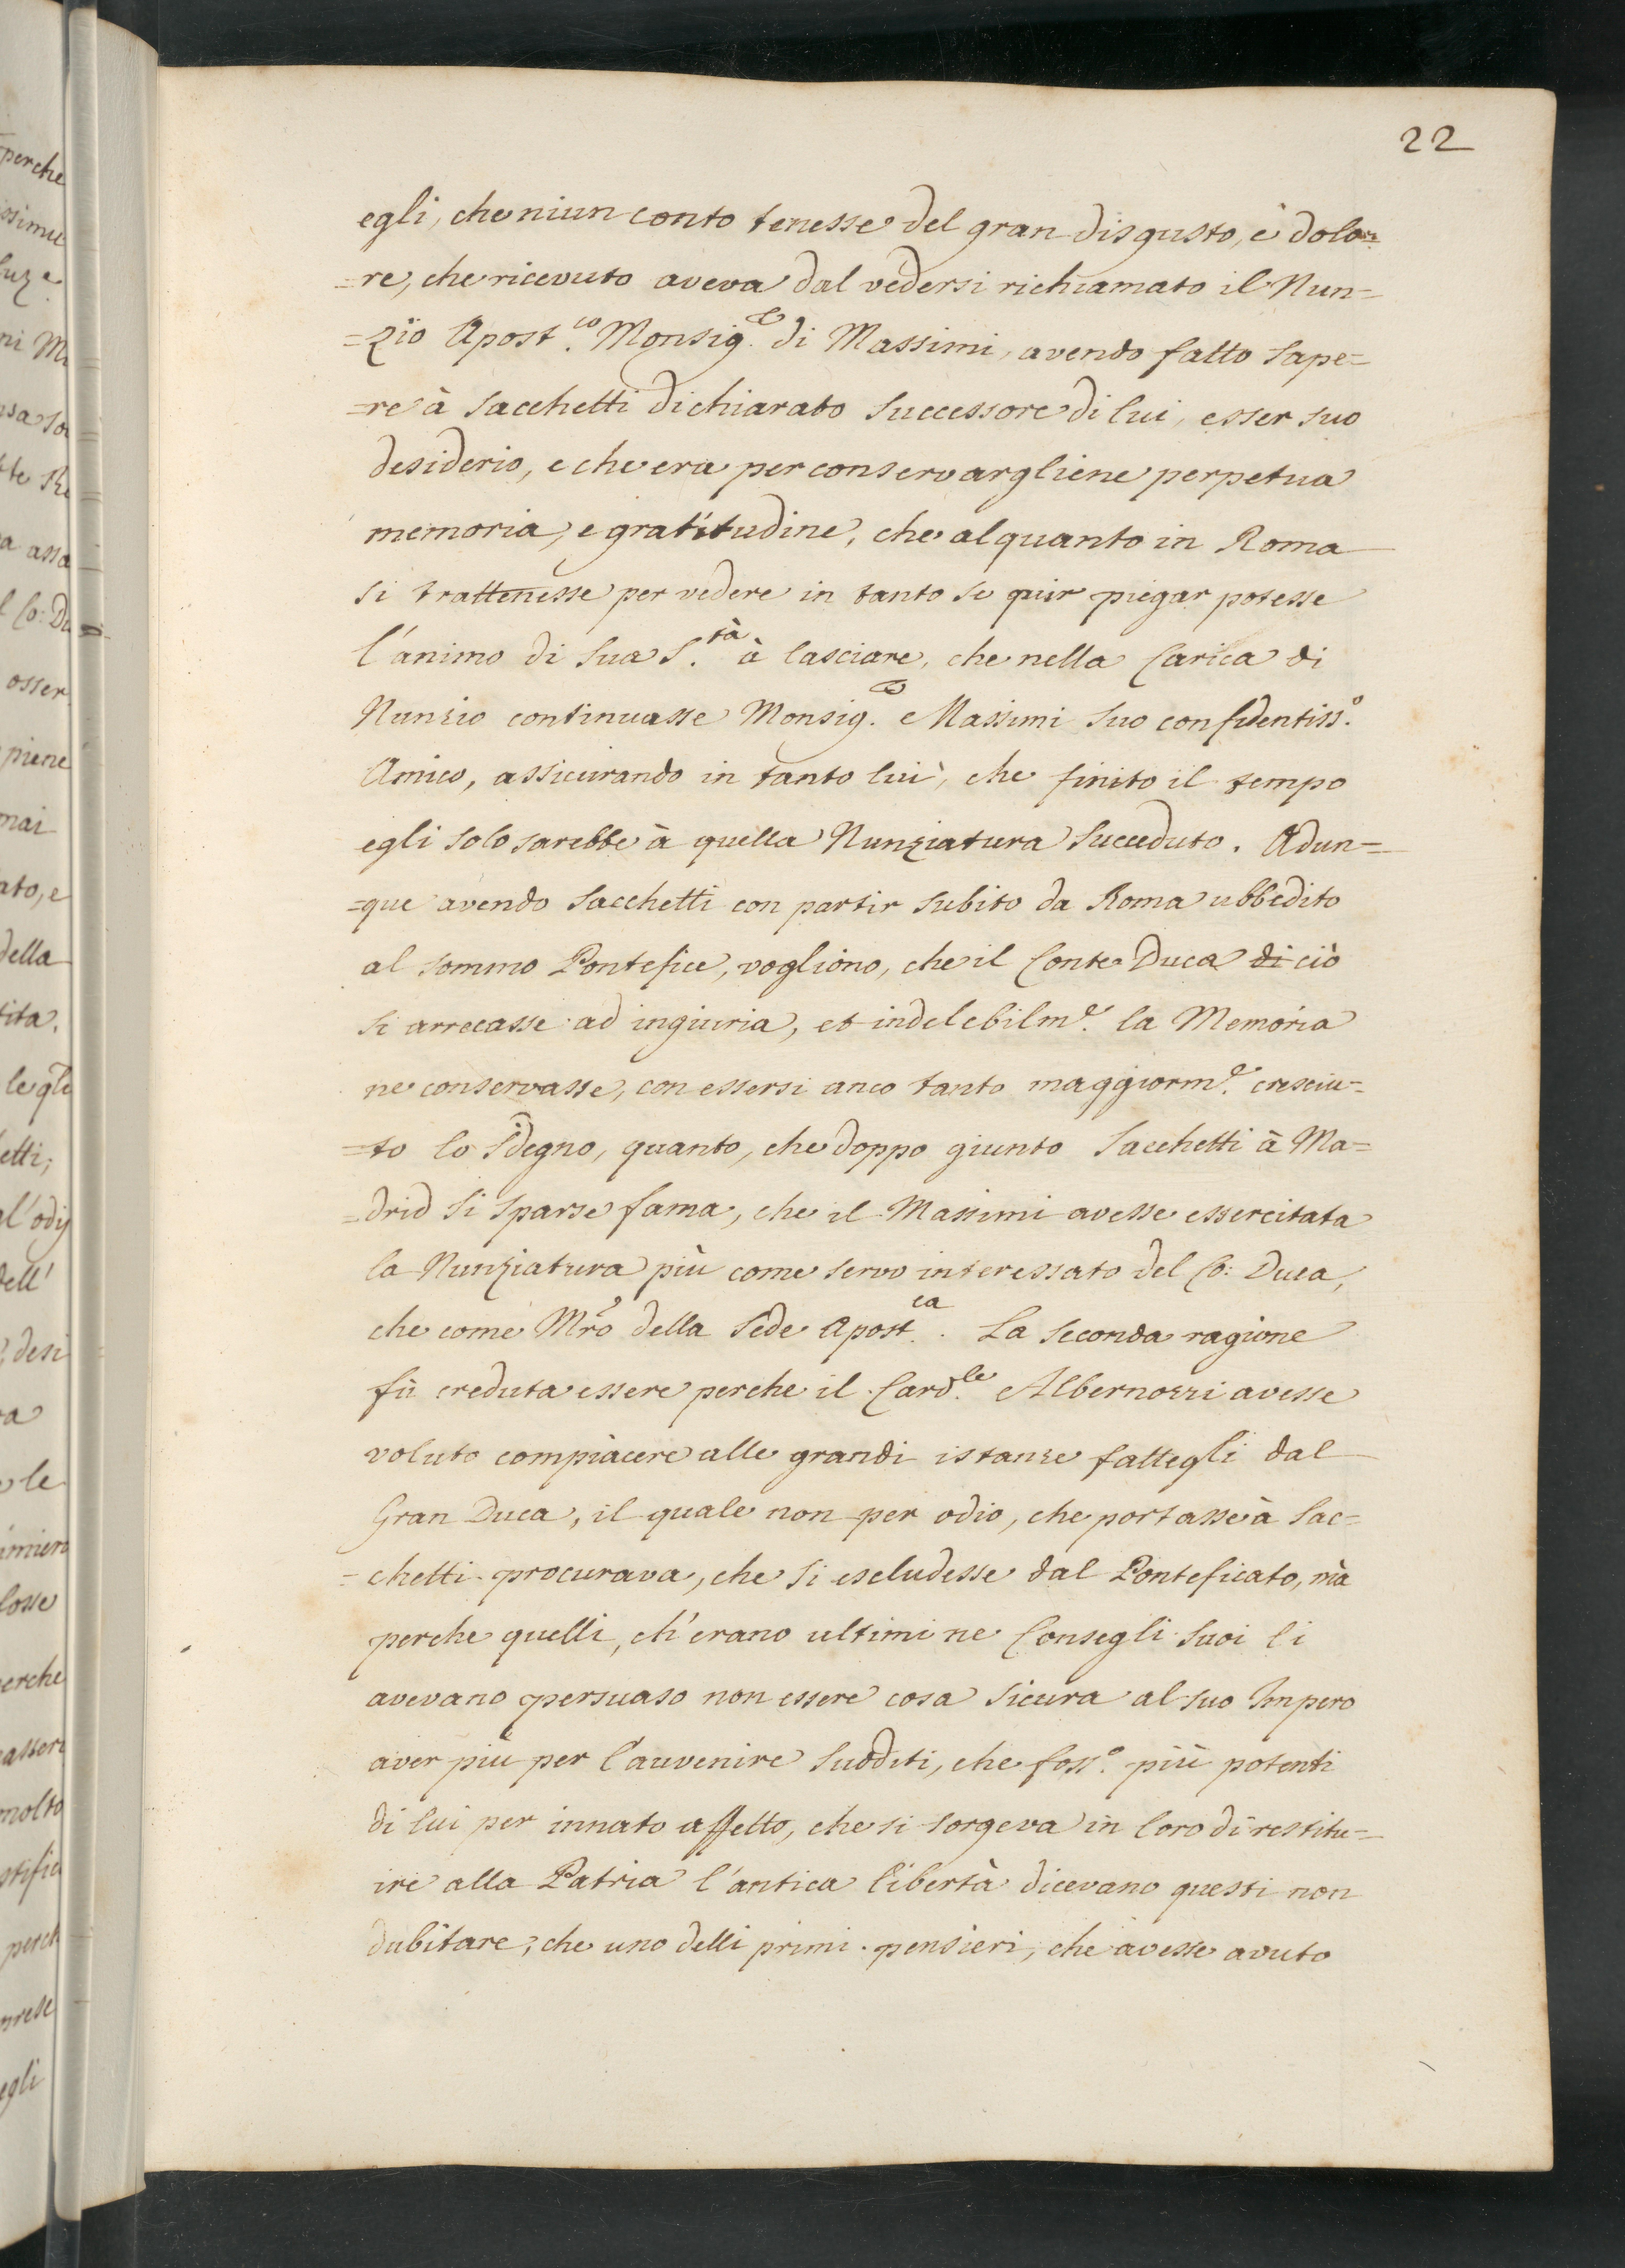 22
egli, che niun conto tenesse del gran disgusto, è dolo=
=re, che ricevuto aveva dal vedersi richiamato il Nun=
=zio Apost.co Monsig.e di Massimi, avendo fatto sape=
=re à Sacchetti dichiarato Successore di lui, esser suo
desiderio, e che era per conservargliene perpetua
memoria, e gratitudine, che alquanto in Roma
si trattenesse per vedere in tanto se pur piegar potesse
l'animo di Sua S.tà à lasciare, che nella Carica di
Nunzio continuasse Monsig.e Massimi Suo confidentiss.o
Amico, assicurando in tanto lui, che finito il tempo
egli solo sarebbe à quella Nunziatura Succeduto. Adun=
=que avendo Sacchetti con partir subito da Roma ubbedito
al sommo Pontefice, vogliono, che il Conte Duca di ciò
si arrecasse ad ingiuria, et indelebilm.e la Memoria
ne conservasse, con essersi anco tanto maggiorm.e cresciu=
=to lo Sdegno, quanto, che doppo giunto Sacchetti à Ma=
=drid si sparse fama, che il Massimi avesse essercitata
la Nunziatura più come servo interessato del Co: Duca,
che come Mro della Sede Apost.ca. La seconda ragione
fù creduta essere perche il Card.le Albernozzi avesse
voluto compiacere alle grandi istanze fattegli dal
Gran Duca, il quale non per odio, che portasse à Sac=
=chetti procurava, che si escludesse dal Ponteficato, mà
perche quelli, ch'erano ultimi ne Consegli suoi li
avevano persuaso non essere cosa sicura al suo Impero
aver più per l'auvenire Sudditi, che foss.o più potenti
di lui per innato affetto, che si sorgeva in loro di restitu=
ire alla Patria l'antica libertà dicevano questi non
dubitare, che uno delli primi pensieri, che avesse avuto